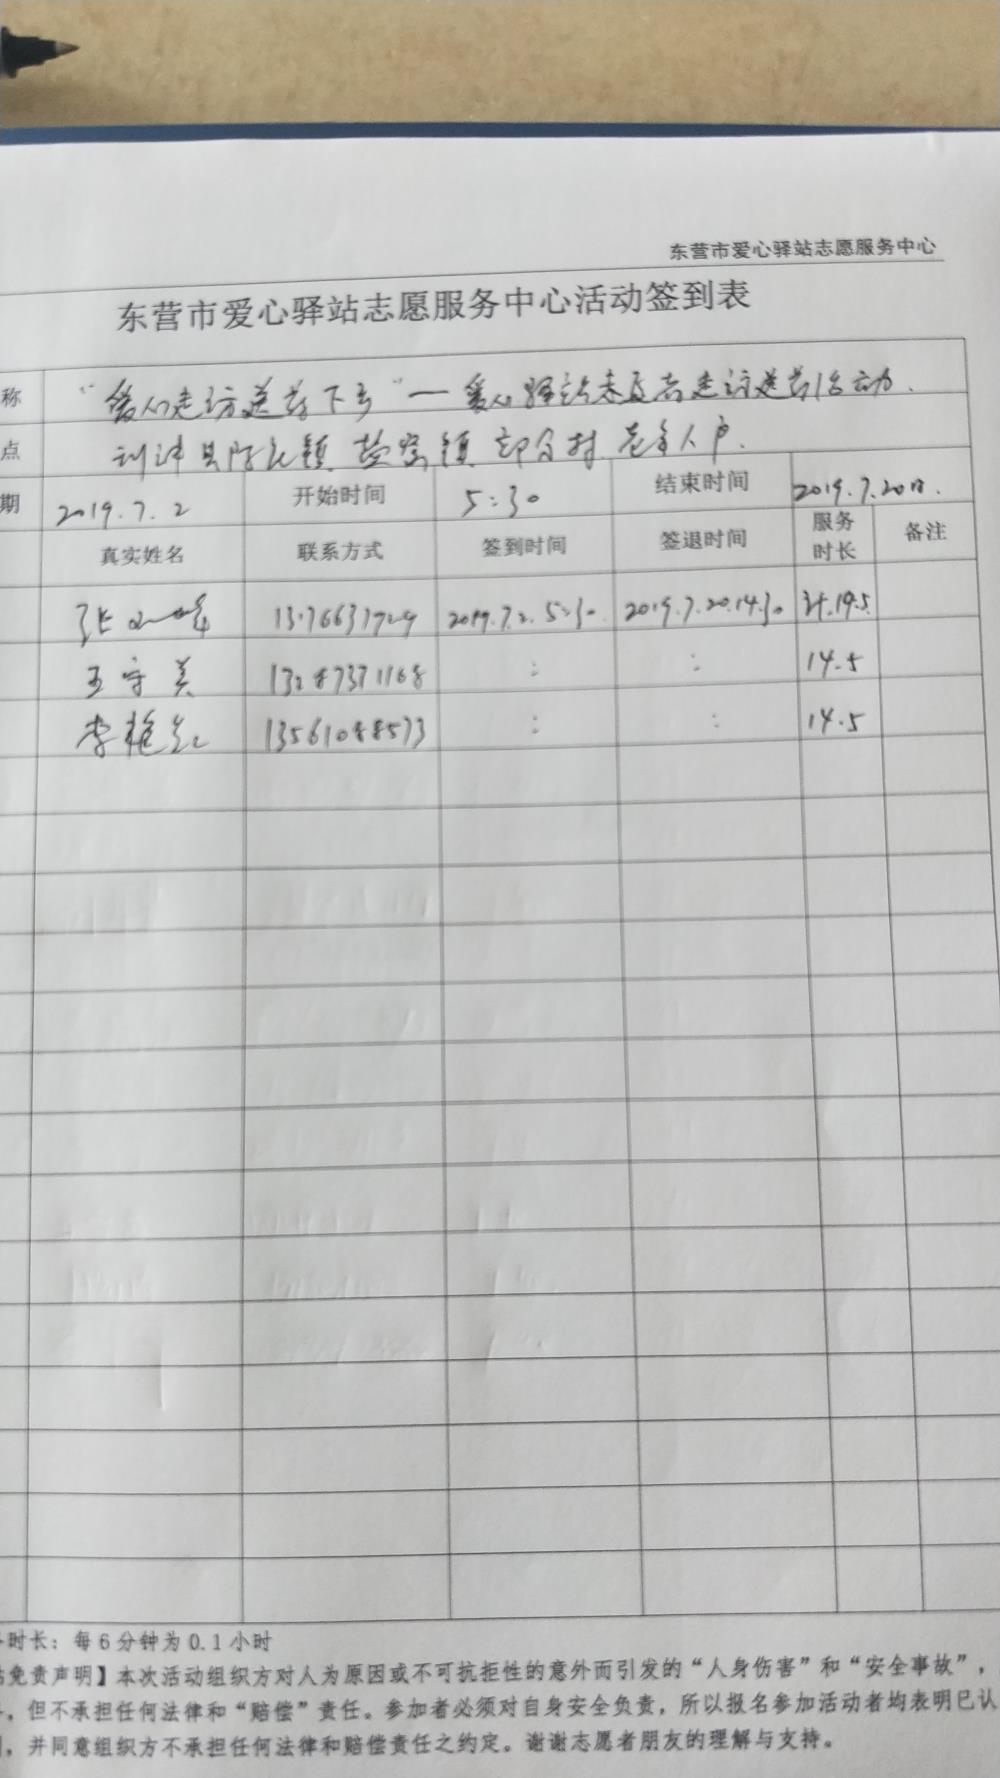 东营市爱心驿站志愿服务中心
东营市爱心驿站志愿服务中心活动签到表
称 “爱心走访送药下乡”一爱心驿站志愿者走访送药活动.
点 利津县陈庄镇 盐窝镇 村 老年人户.
期 2019.7.2 开始时间 5:30 结束时间 2019.7.20日.
真实姓名 联系方式 签到时间 签退时间 服务时长 备注
张 2019.7.2. 5:30. 2019.7.20.14.30
王守美 13287371168 : : 14.5
李艳红 13561088573 : : 14.5
时长：每6分钟为0.1小时
免责声明】本次活动组织方对人为原因或不可抗拒性的意外而引发的“人身伤害”和“安全事故”，
，但不承担任何法律和“赔偿”责任。参加者必须对自身安全负责，所以报名参加活动者均表明已认
，并同意组织方不承担任何法律和赔偿责任之约定。谢谢志愿者朋友的理解与支持。